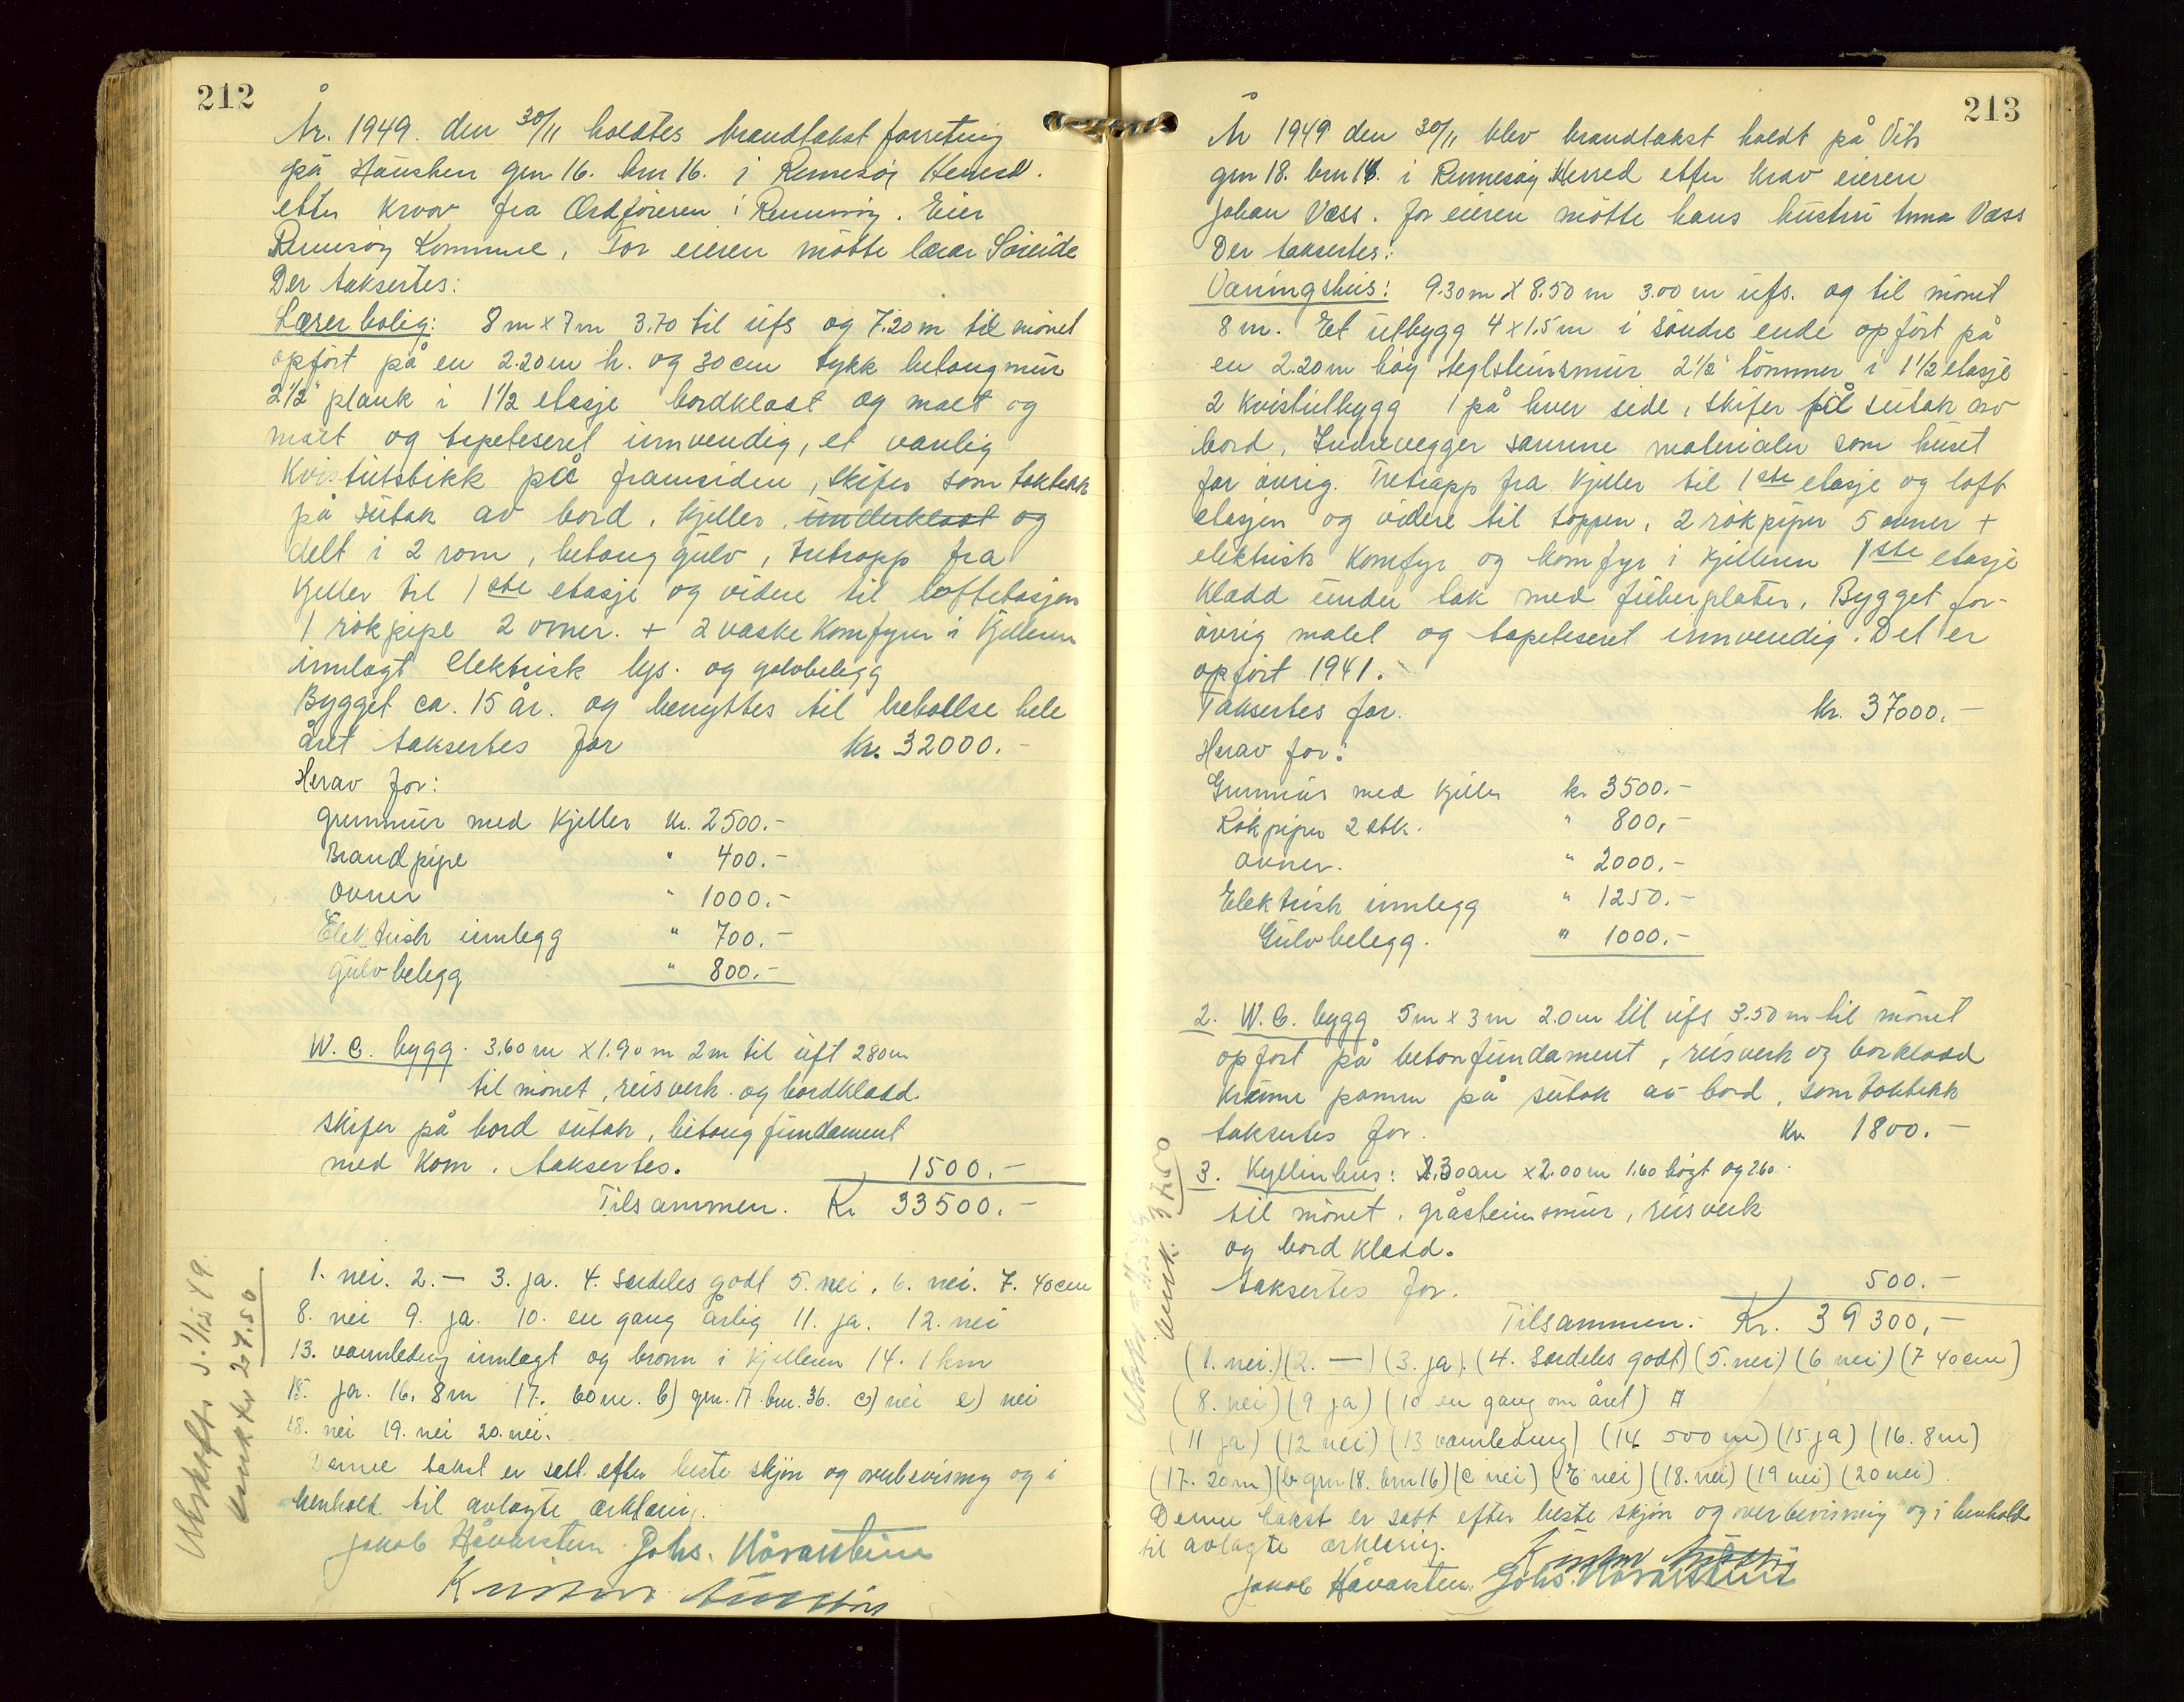 212
År. 1949. den 30/11 holdtes brandtakst forretning
på Hausken gnr 16. bnr 16. i Rennesøy Herred.
etter krav fra Ordføreren i Rennesøy. Eier
Rennesøy Kommune, For eieren møtte lærar Søreide
Der taksertes:
Lærer bolig: 8 m x 7 m 3.70 til ufs og 7.20 m til mønet
opført på en 2.20 m h. og 30 cm tykk betongmur
2 1/2" plank i 1 1/2 etasje bordklæt og malt og
malt og tapeteseret innvendig, et vanlig
Kvistutstikk på framsiden, skifer som taktekk
på sutak av bord. kjeller, underklæt og
delt i 2 rom, betong gulv, tretrapp fra
kjeller til 1ste etasje og videre til loftetasjen
1 røkpipe 2 ovner. + 2 vaske Komfyrer i kjelleren
innlagt elektrisk lys. og golvbelegg
Bygget ca. 15 år. og benyttes til beboelse hele
året taksertes for kr. 32000.-
Herav for:
grunnmur med kjeller kr. 2500.-
Brandpipe " 400.-
ovner " 1000.-
Elektrisk innlegg " 700.-
gulvbelegg " 800.-
W. C. bygg. 3.60 m x 1.90 m 2 m til uft 280 m
til mønet, reisverk. og bordkladd.
skifer på bord sutak, betong fundament
med kom. taksertes. 1500.-
Tilsammen. Kr 33500.-
1. nei. 2. — 3. ja. 4. særdeles godt 5. nei. 6. nei. 7. 40 cm
8. nei 9. ja. 10. en gang årlig 11. ja. 12. nei
13. vannledning innlagt og brønn i kjelleren 14. 1 km
15. ja. 16. 8 m 17. 60 m. b) gnr. 17 bnr. 36. c) nei e) nei
18. nei 19. nei 20. nei.
Denne takst er sett efter beste skjøn og overbevisning og i
henhold til avlagte erklæring.
Jakob Håvarstein Johs. Håvarstein
Utskrift s. 1/12 49.
kr 27.50
213
År 1949 den 30/11 blev brandtakst holdt på Vik
gnr 18. bnr 18. i Rennesøy Herred etter krav eieren
Johan Vass. for eieren møtte hans hustru Anna Vass
Der taksertes:
Våningshus: 9.30 m x 8.50 m 3.00 m ufs. og til mønet
8 m. Et utbygg 4 x 1.5 m i søndre ende opført på
en 2.20 m høy teglsteinsmur 2 1/2" tømmer i 1 1/2 etasje
2 kvistutbygg 1 på hver side, skifer på sutak av
bord, Indrevegger samme materialer som huset
for øvrig. Tretrapp fra kjeller til 1ste etasje og loft
etasjen og videre til toppen, 2 røkpiper 5 ovner +
elektrisk komfyr og komfyr i kjelleren 1ste etasje
kladd under tak med fiberplater. Bygget for-
øvrig malet og tapeteseret innvendig. Det er
opført 1941.
Taksertes for. kr. 37000.-
Herav for:
Grunmur med kjeller kr 3500.-
Røkpiper 2 stk. " 800,-
ovner. " 2000.-
Elektrisk innlegg " 1250.-
Gulvbelegg. " 1000.-
2. W.C. bygg 5 m x 3 m 2.0 m til ufs 3.50 m til mønet
opført på betonfundament, reisverk og borkladd
panner på sutak av bord, som taktekk
taksertes for. kr 1800.-
3. Kyllinhus: 2.30 m x 2.00 m 1.60 høgt og 260.
til mønet. gråsteinsmur, reisverk
og bord kladd.
taksertes for. 500.-
Tilsammen. Kr. 39300,-
(1. nei.) (2. —) (3. ja). (4. Særdeles godt) (5. nei) (6 nei) (7 40 cm)
(8. nei) (9 ja) (10 en gang om året)
(11 ja) (12 nei) (13 vannledning) (14 500 m) (15 ja) (16. 8 m)
(17. 20 m) (b gnr 18. bnr 16) (c nei) (E nei) (18. nei) (19 nei) (20 nei).
Denne takst er satt efter beste skjøn og overbevisning og i henhold
til avlagte erklæring.
Jakob Håvarstein. Johs. Håvarstein